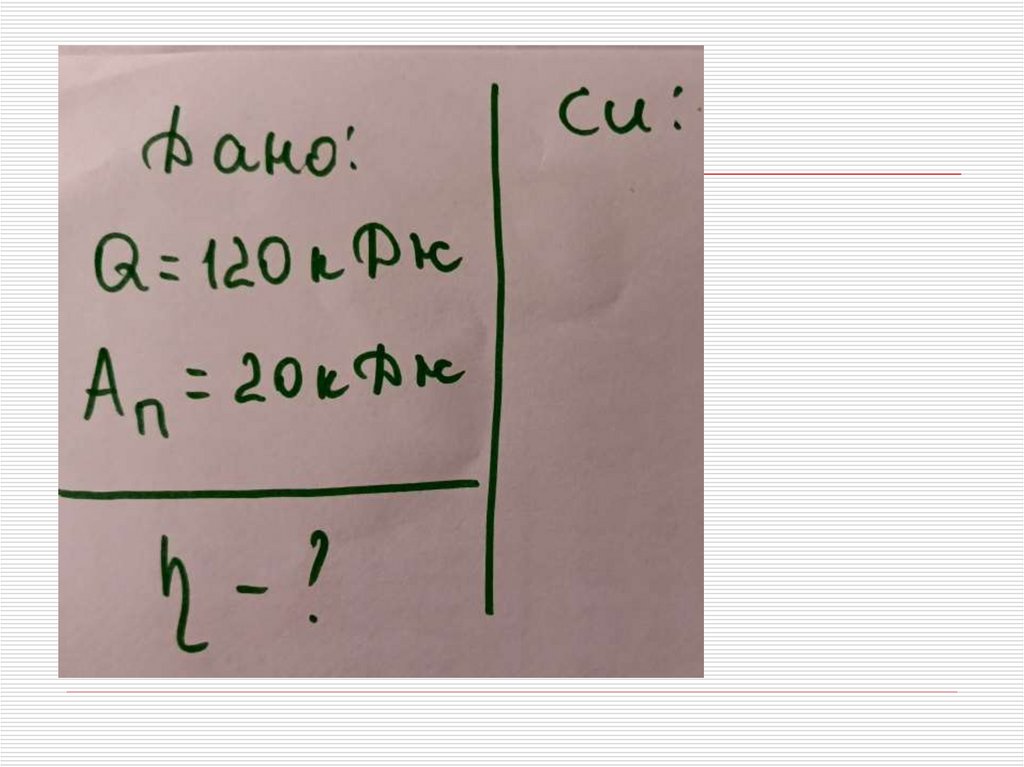 Дано:
Q = 120 кДж
Aп = 20 кДж
η - ?
СИ: